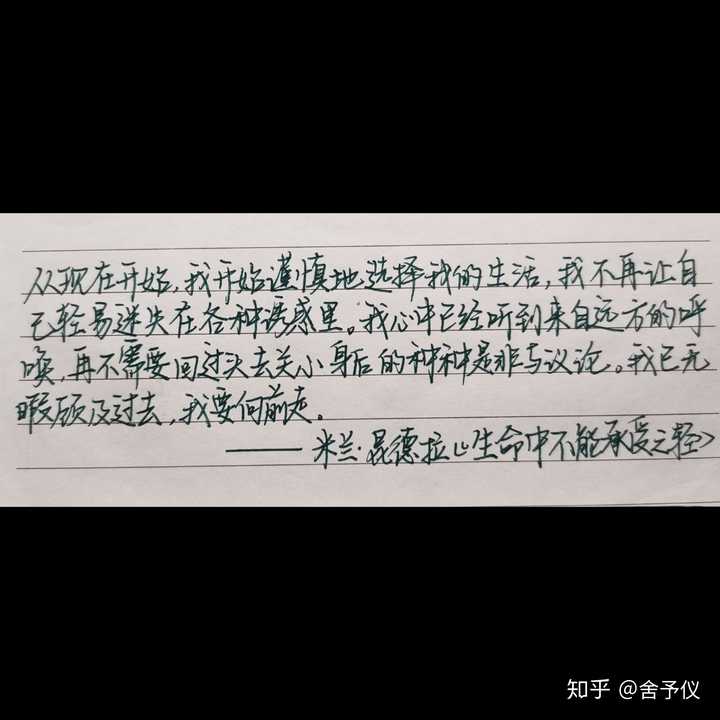 从现在开始,我开始谨慎地选择我的生活,我不再让自
己轻易迷失在各种诱惑里。我心中已经听到来自远方的呼
唤,再不需要回过头去关小身后的种种是非与议论。我已无
暇顾及过去,我要向前走。
——米兰·昆德拉《生命中不能承受之轻》
知乎 @舍予仪